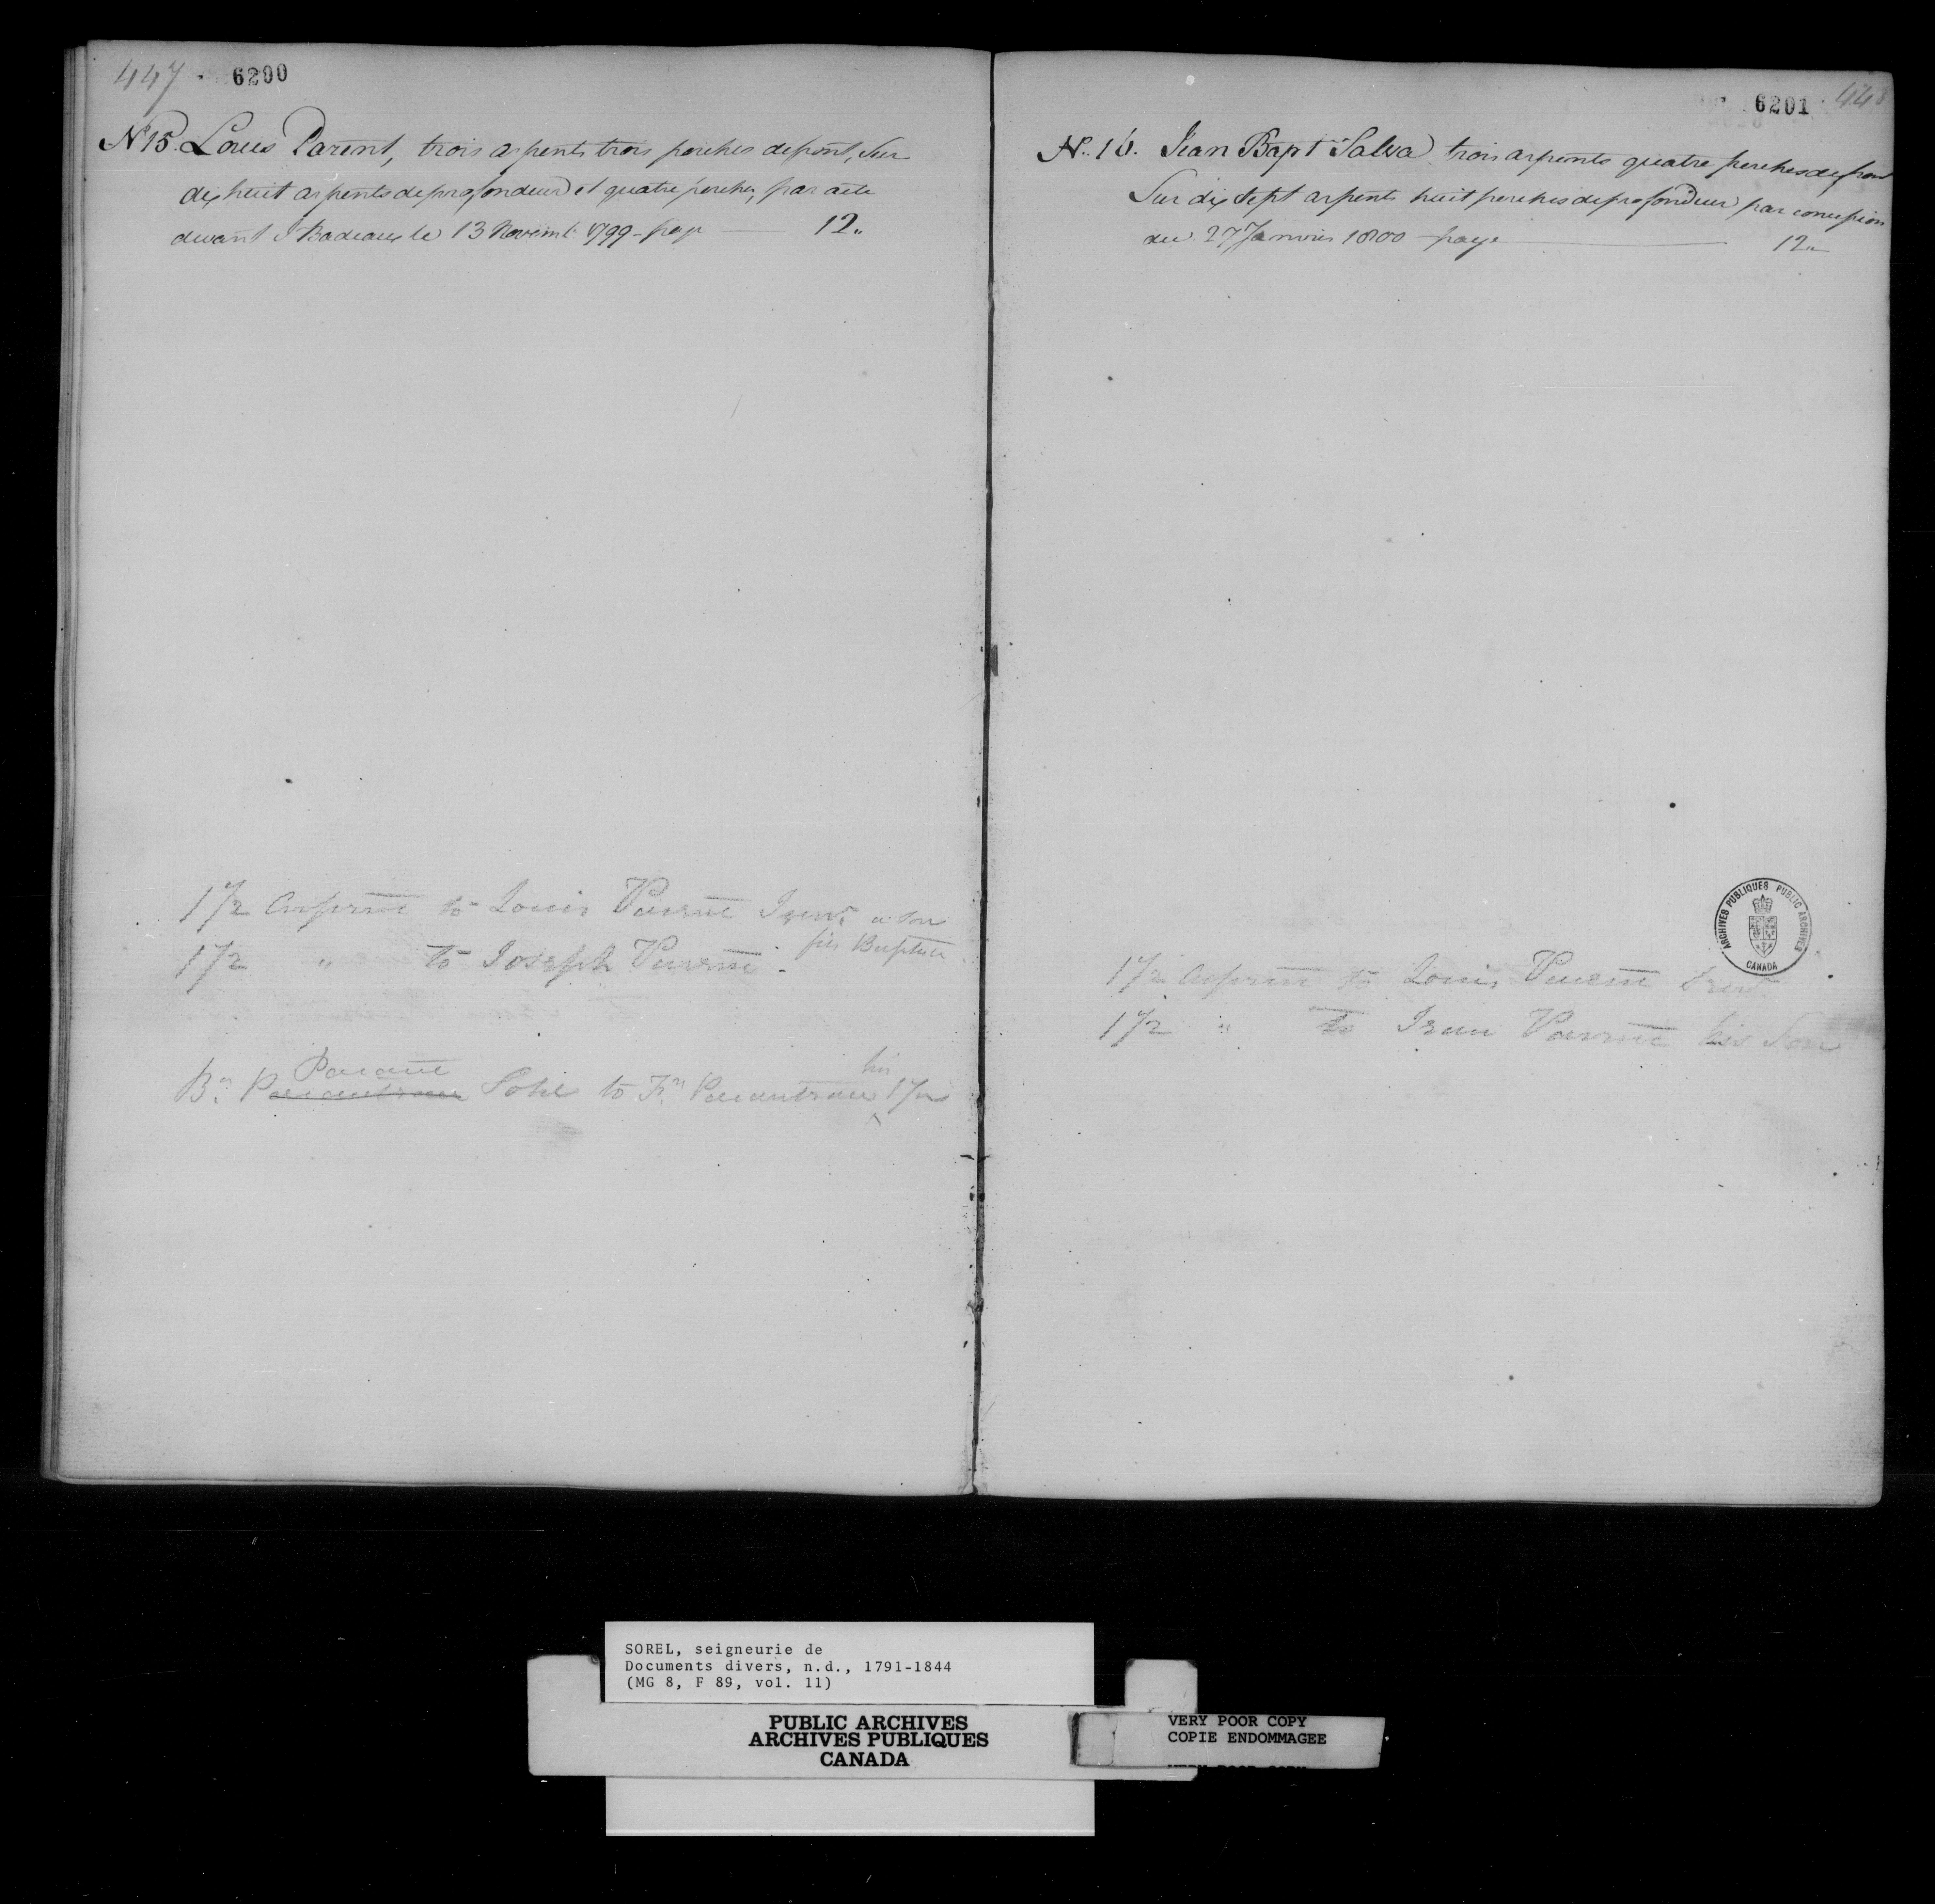 447 6200
N 15. Louis Parent, trois arpents trois perches de front, Sur
dix huit arpents de profondeur et quatre perches, par acte
devant J Badeaux le 13 Novemb. 1799 - paye 12„
1 1/2 Arpent to Louis Parent Junr.
1 1/2 „ to Joseph Parent -
fils Baptiste
Parant
Bte. Sold to Frs. his 1/2
6201 448
N.. 16. Jean Bapt Salva trois arpents quatre perches de front
Sur dix sept arpents huit perches de profondeur par concession
du 27 Janvier 1800 - paye 12„
1 1/2 Arpent to Louis Parent
1 1/2 „ to Jean Parent his Son
ARCHIVES PUBLIQUES PUBLIC ARCHIVES
CANADA
SOREL, seigneurie de
Documents divers, n.d., 1791-1844
(MG 8, F 89, vol. 11)
PUBLIC ARCHIVES
ARCHIVES PUBLIQUES
CANADA
VERY POOR COPY
COPIE ENDOMMAGEE
VERY POOR COPY